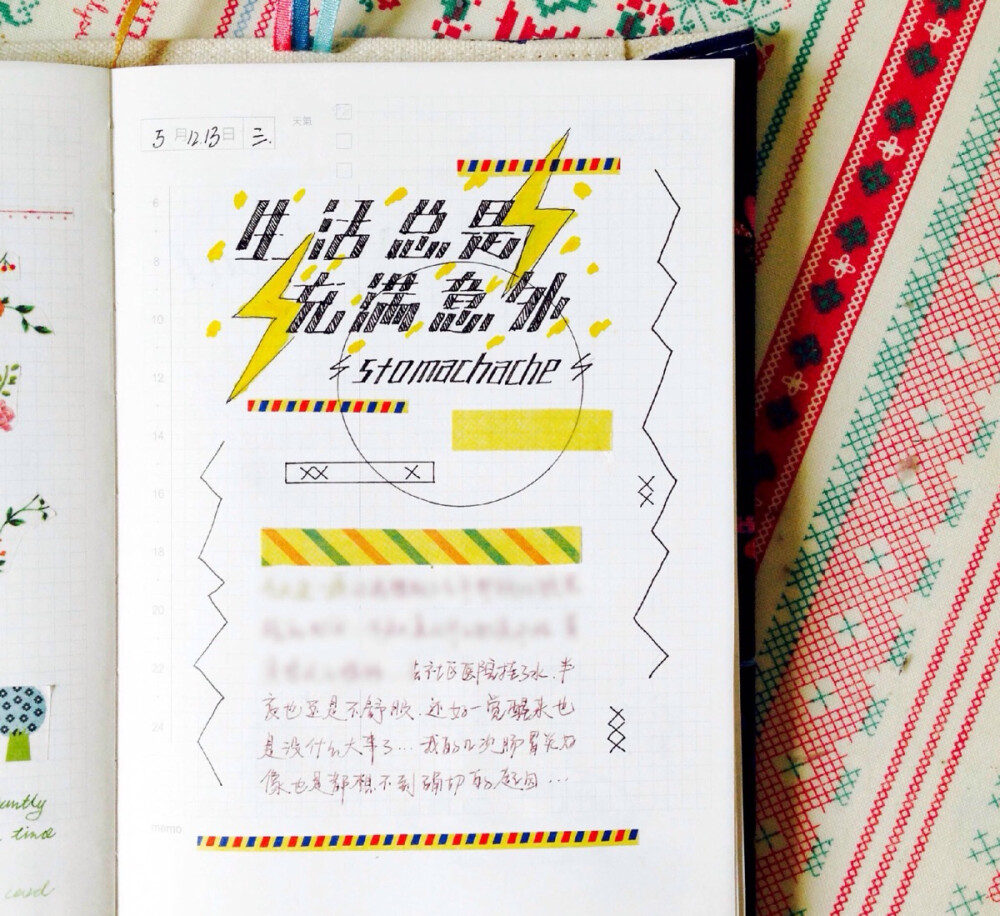 5月12.13日 三.
天氣
生活总是
充满意外
stomachache
XX X
6
8
10
12
14
16
18
20
22
24
去社区医院挂了水.半
夜也还是不舒服.还好一觉醒来也
是没什么大事了...我的几次肠胃炎好
像也是都想不到确切的起因...
memo
untly
time
card